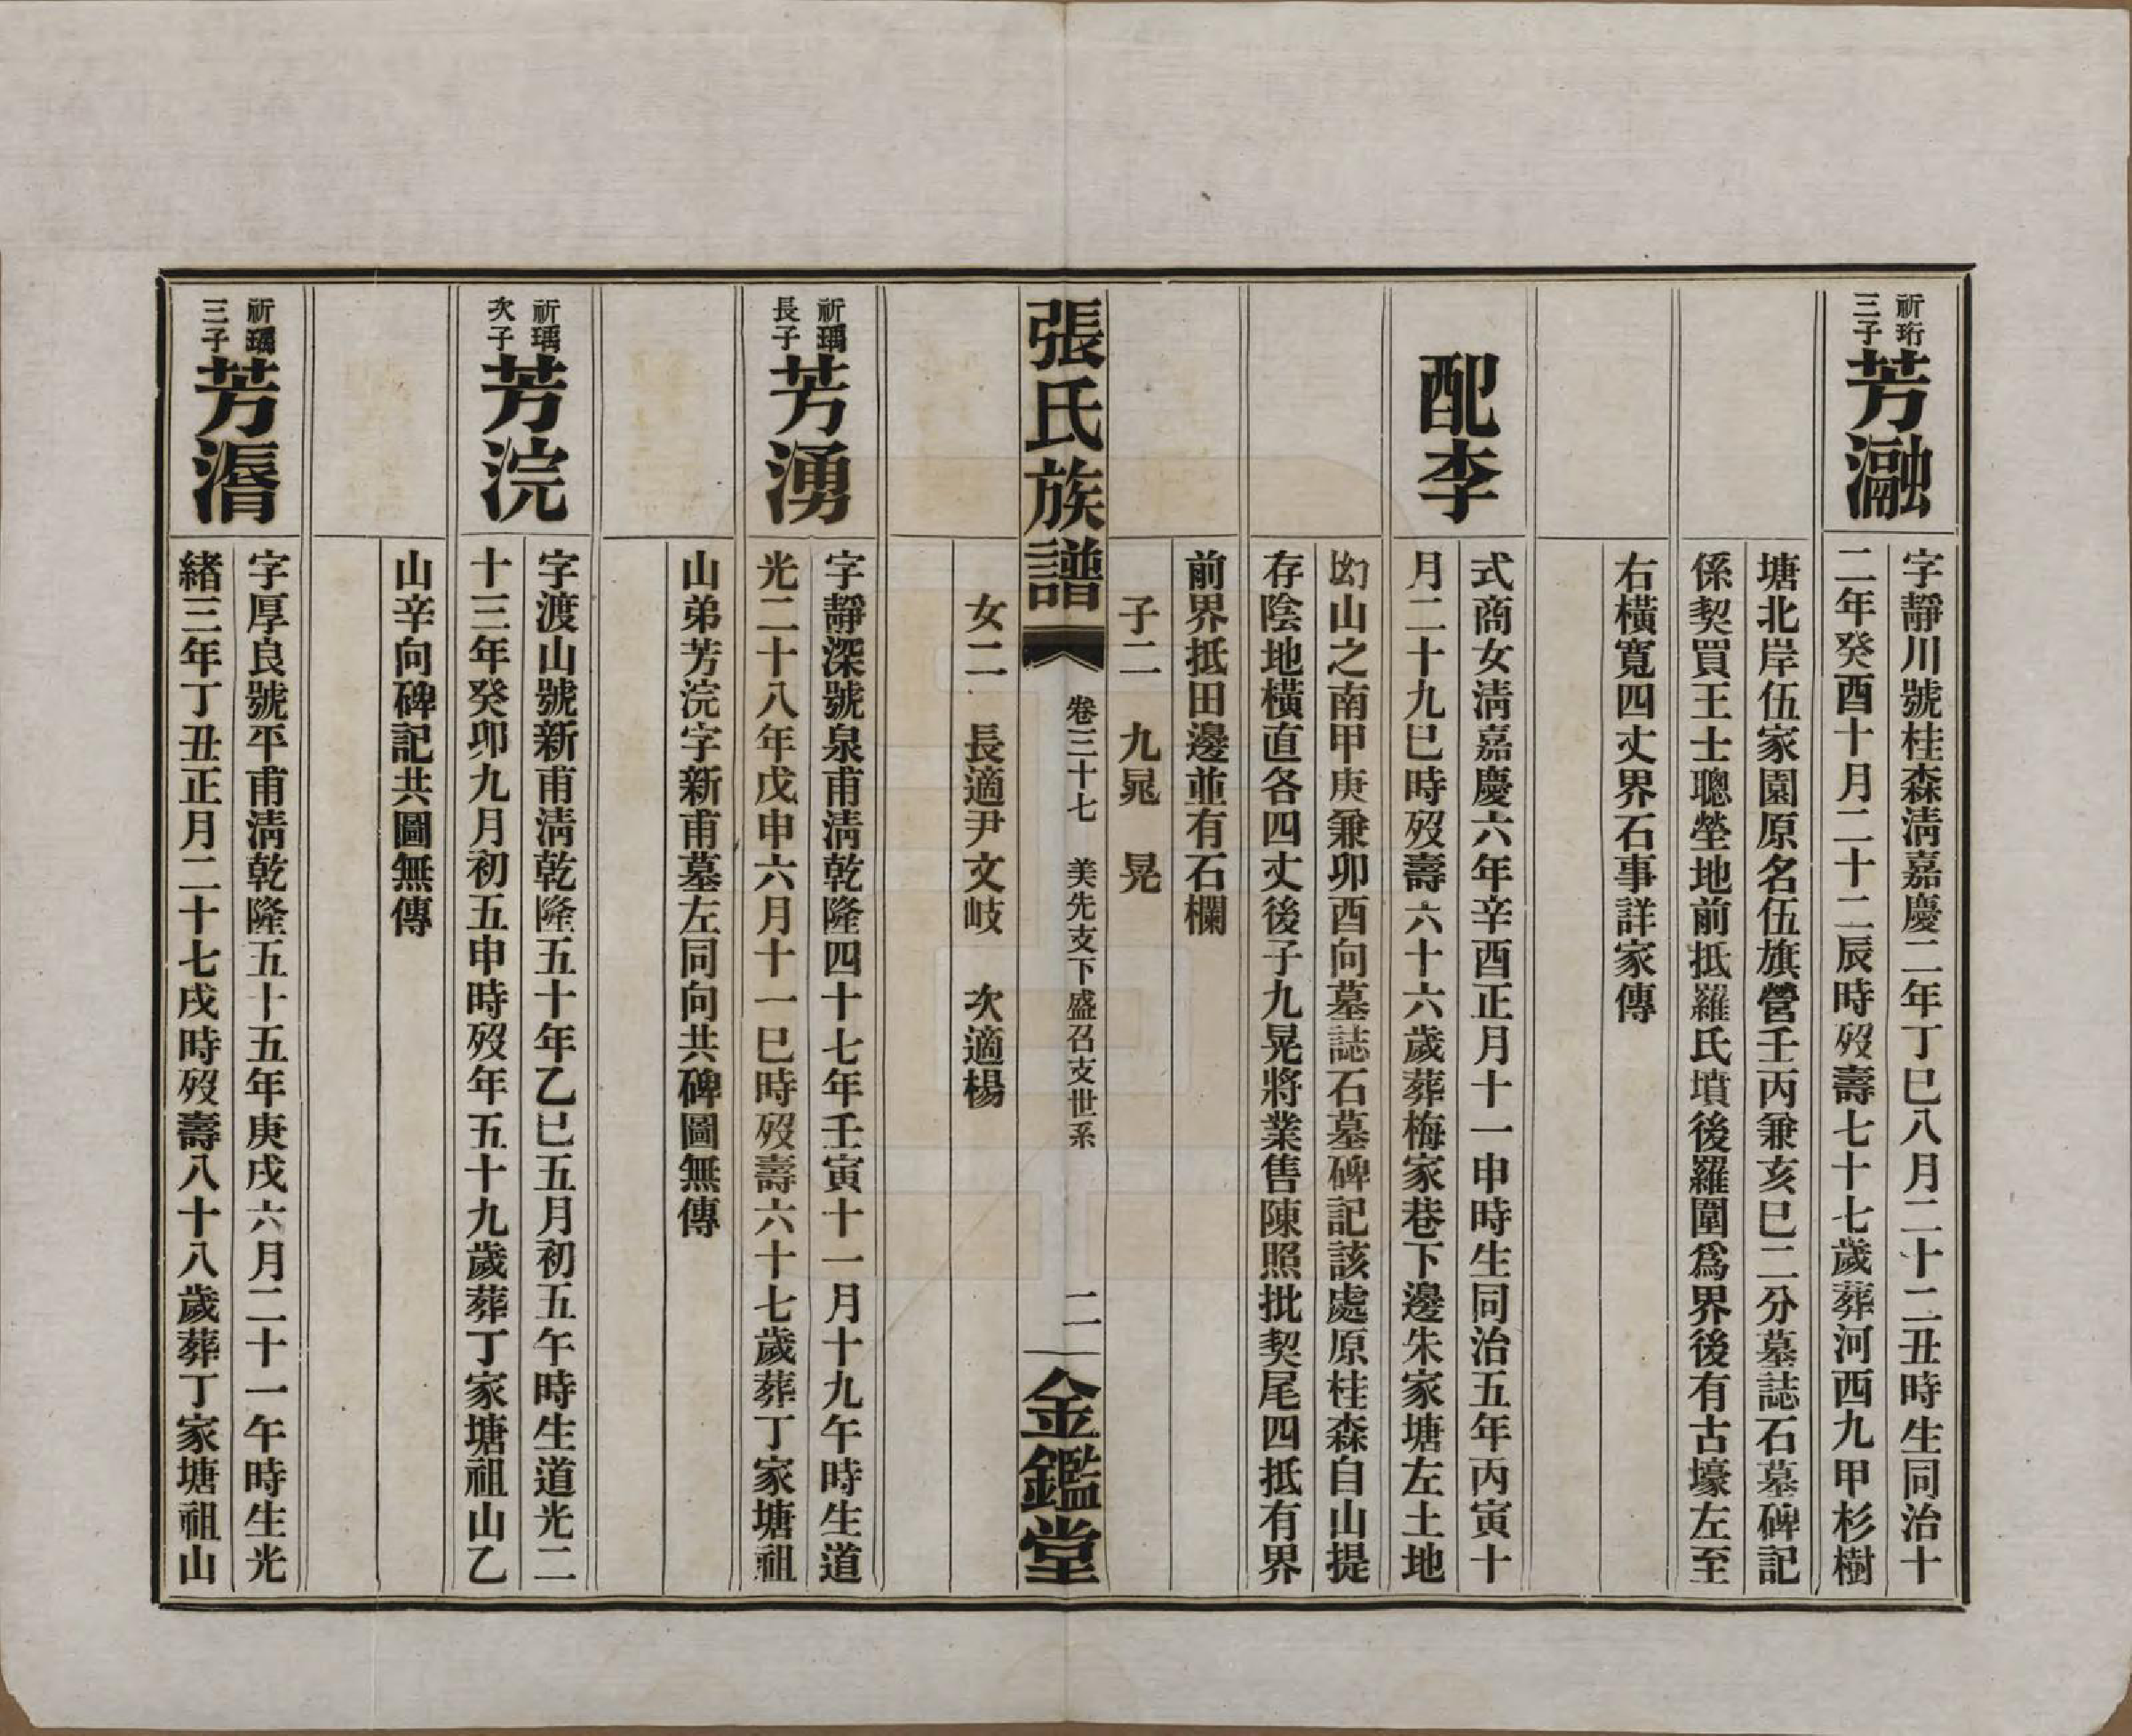 祈珩
三子
芳瀜
字靜川號桂森淸嘉慶二年丁巳八月二十二丑時生同治十
二年癸酉十月二十二辰時歿壽七十七歲葬河西九甲杉樹
塘北岸伍家園原名伍旗營壬丙兼亥巳二分墓誌石墓碑記
係契買王士聰塋地前抵羅氏墳後羅圍爲界後有古壕左至
右橫寬四丈界石事詳家傳
配李
式商女淸嘉慶六年辛酉正月十一申時生同治五年丙寅十
月二十九巳時歿壽六十六歲葬梅家巷下邊朱家塘左土地
坳山之南甲庚兼卯酉向墓誌石墓碑記該處原桂森自山提
存陰地橫直各四丈後子九晃將業售陳照批契尾四抵有界
前界抵田邊並有石欄
子二　九晁　晃
張氏族譜
卷三十七　美先支下盛召支世系
二
金鑑堂
女二　長適尹文岐　次適楊
祈瑀
長子
芳湧
字靜深號泉甫淸乾隆四十七年壬寅十一月十九午時生道
光二十八年戊申六月十一巳時歿壽六十七歲葬丁家塘祖
山弟芳浣字新甫墓左同向共碑圖無傳
祈瑀
次子
芳浣
字渡山號新甫淸乾隆五十年乙巳五月初五午時生道光二
十三年癸卯九月初五申時歿年五十九歲葬丁家塘祖山乙
山辛向碑記共圖無傳
祈瑀
三子
芳湣
字厚良號平甫淸乾隆五十五年庚戌六月二十一午時生光
緖三年丁丑正月二十七戌時歿壽八十八歲葬丁家塘祖山